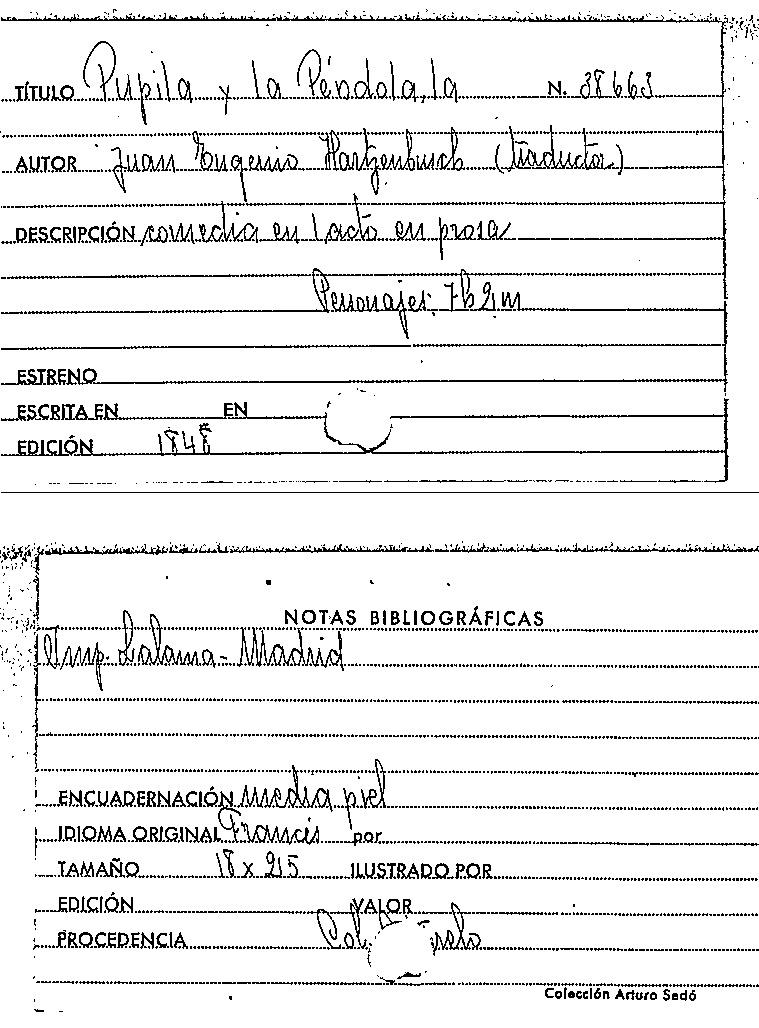 TÍTULO Pupila y la Péndola, la N. 38663
AUTOR Juan Eugenio Hartzenbusch (traductor)
DESCRIPCIÓN comedia en 1 acto en prosa
Personajes: 7h 2m
ESTRENO
ESCRITA EN EN
EDICIÓN 1848
NOTAS BIBLIOGRÁFICAS
Imp. Lalama - Madrid
ENCUADERNACIÓN media piel
IDIOMA ORIGINAL Francés por
TAMAÑO 18 x 215 ILUSTRADO POR
EDICIÓN VALOR
PROCEDENCIA Col.
Colección Arturo Sedó